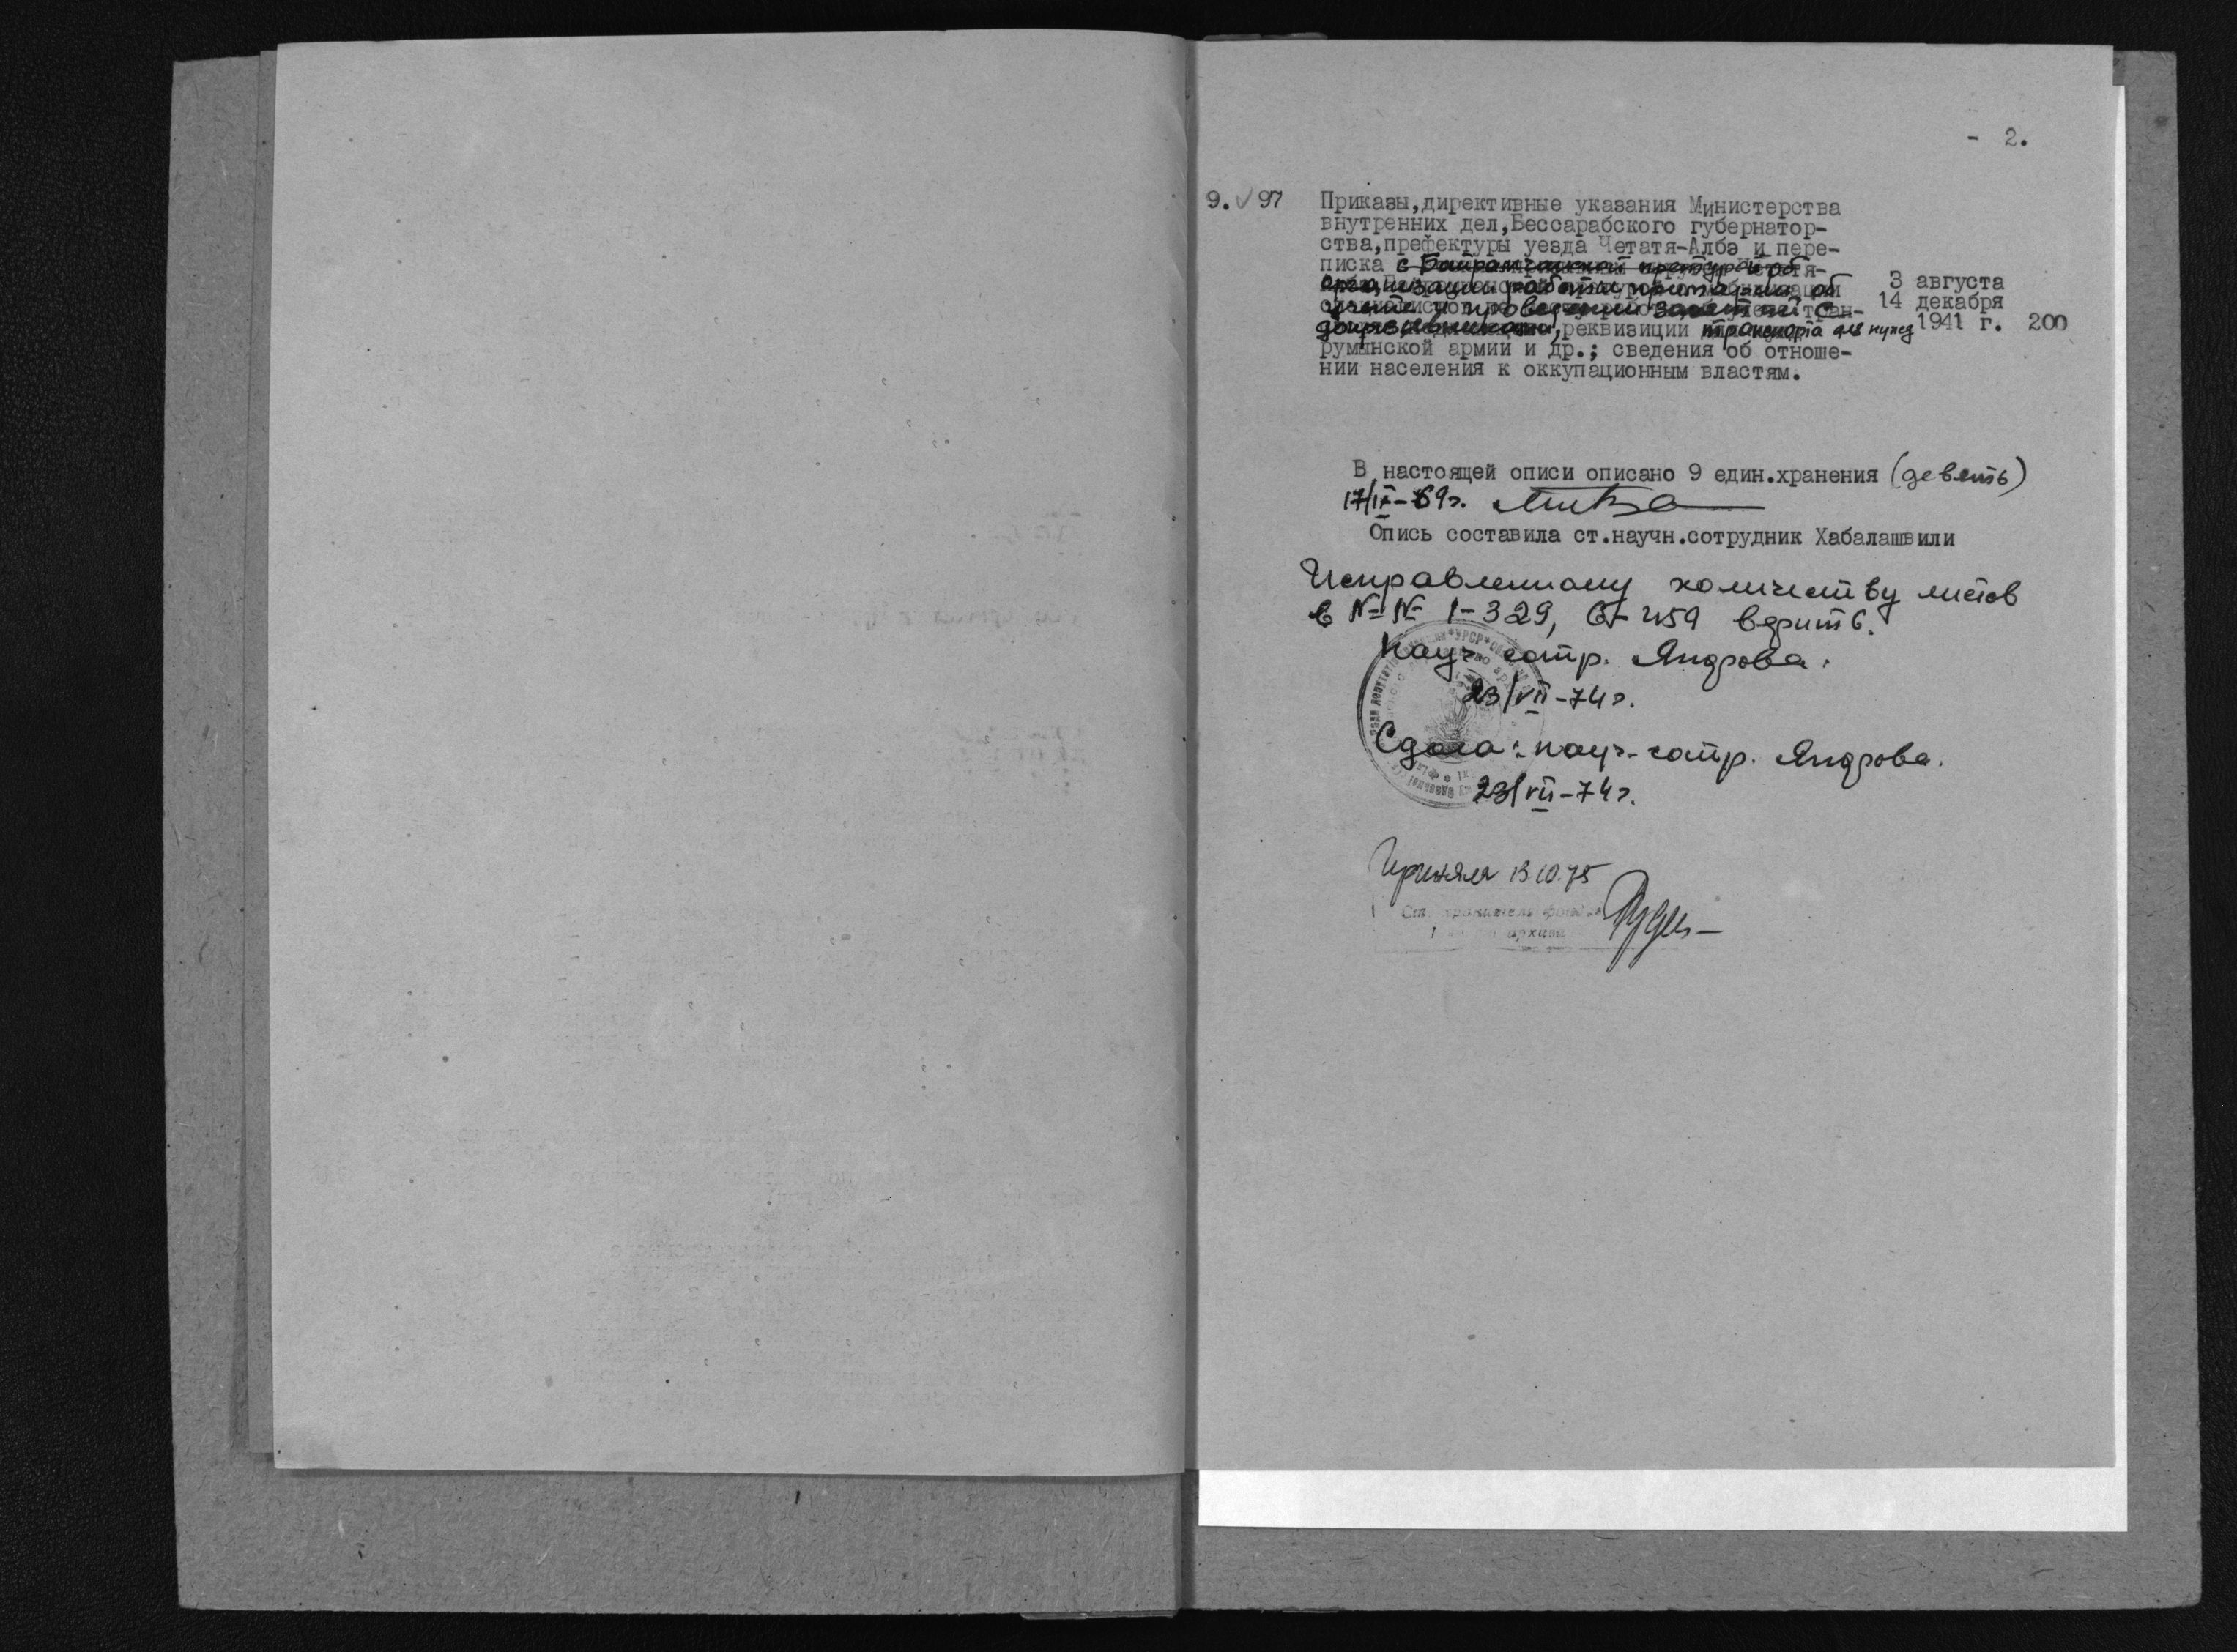 - 2.
9. ✓ 97 Приказы,директивные указания Министерства
внутренних дел,Бессарабского губернатор-
ства,префектуры уезда Четатя-Албэ и пере-
писка с Байрамчанской претурой об
организации работы примэрия, об 3 августа
учете и проведении занятий с 14 декабря
допризывниками, реквизиции транспорта для нужд 1941 г. 200
румынской армии и др.; сведения об отноше-
нии населения к оккупационным властям.
В настоящей описи описано 9 един.хранения (девять)
17/IX-69г.
Опись составила ст.научн.сотрудник Хабалашвили
Исправленному количеству листов
в №№ 1-329, 6-459 верить.
Науч. сотр. Яндрова.
23/VII-74г.
Сдала: науч. сотр. Яндрова.
23/VII-74г.
Принял 13.10.75
Ст. хранитель фондов
архива